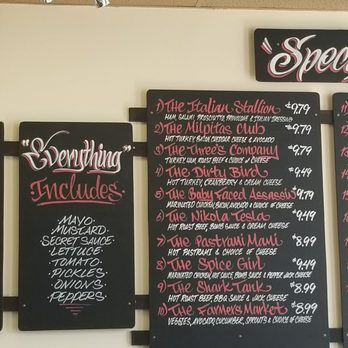 "Everything"
Includes
MAYO
MUSTARD
SECRET SAUCE
LETTUCE
TOMATO
PICKLES
ONIONS
PEPPERS
Spec
1) The Italian Stallion $9.79
HAM, SALAMI, PROSCIUTTO, PROVOLONE & ITALIAN DRESSING
2) The Milpitas Club 9.79
HOT TURKEY, BACON, CHEDDAR CHEESE
3) The Three's Company 9.79
TURKEY, HAM, ROAST BEEF & CHOICE OF CHEESE
4) The Dirty Bird 9.49
HOT TURKEY, CRANBERRY & CREAM CHEESE
5) The Baby Faced Assassin 9.79
MARINATED CHICKEN, BACON, AVOCADO & CHOICE OF CHEESE
6) The Nikola Tesla 9.49
HOT ROAST BEEF, BOMB SAUCE & CREAM CHEESE
7) The Pastrami Mami $8.99
HOT PASTRAMI & CHOICE OF CHEESE
8) The Spice Girl 9.49
MARINATED CHICKEN, HOT SAUCE, BOMB SAUCE & PEPPER JACK CHEESE
9) The Shark Tank 8.99
HOT ROAST BEEF, BBQ SAUCE & JACK CHEESE
10) The Farmers Market $8.99
VEGGIES, AVOCADO, CUCUMBER, SPROUTS & CHOICE OF CHEESE